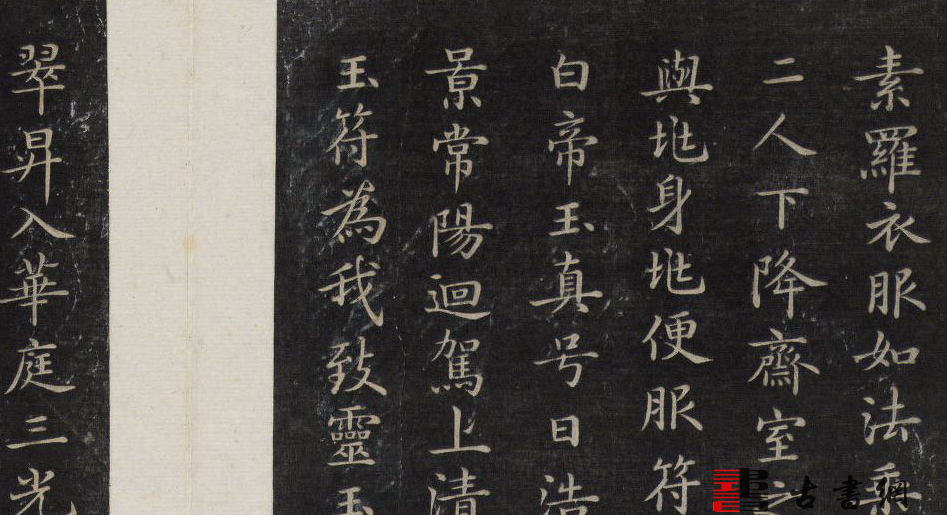 素羅衣服如法乘
二人下降齋室之
與兆身兆便服符
白帝玉真号曰浩
景常陽迴駕上清
玉符為我致靈玉
翠昇入華庭三光
古書網